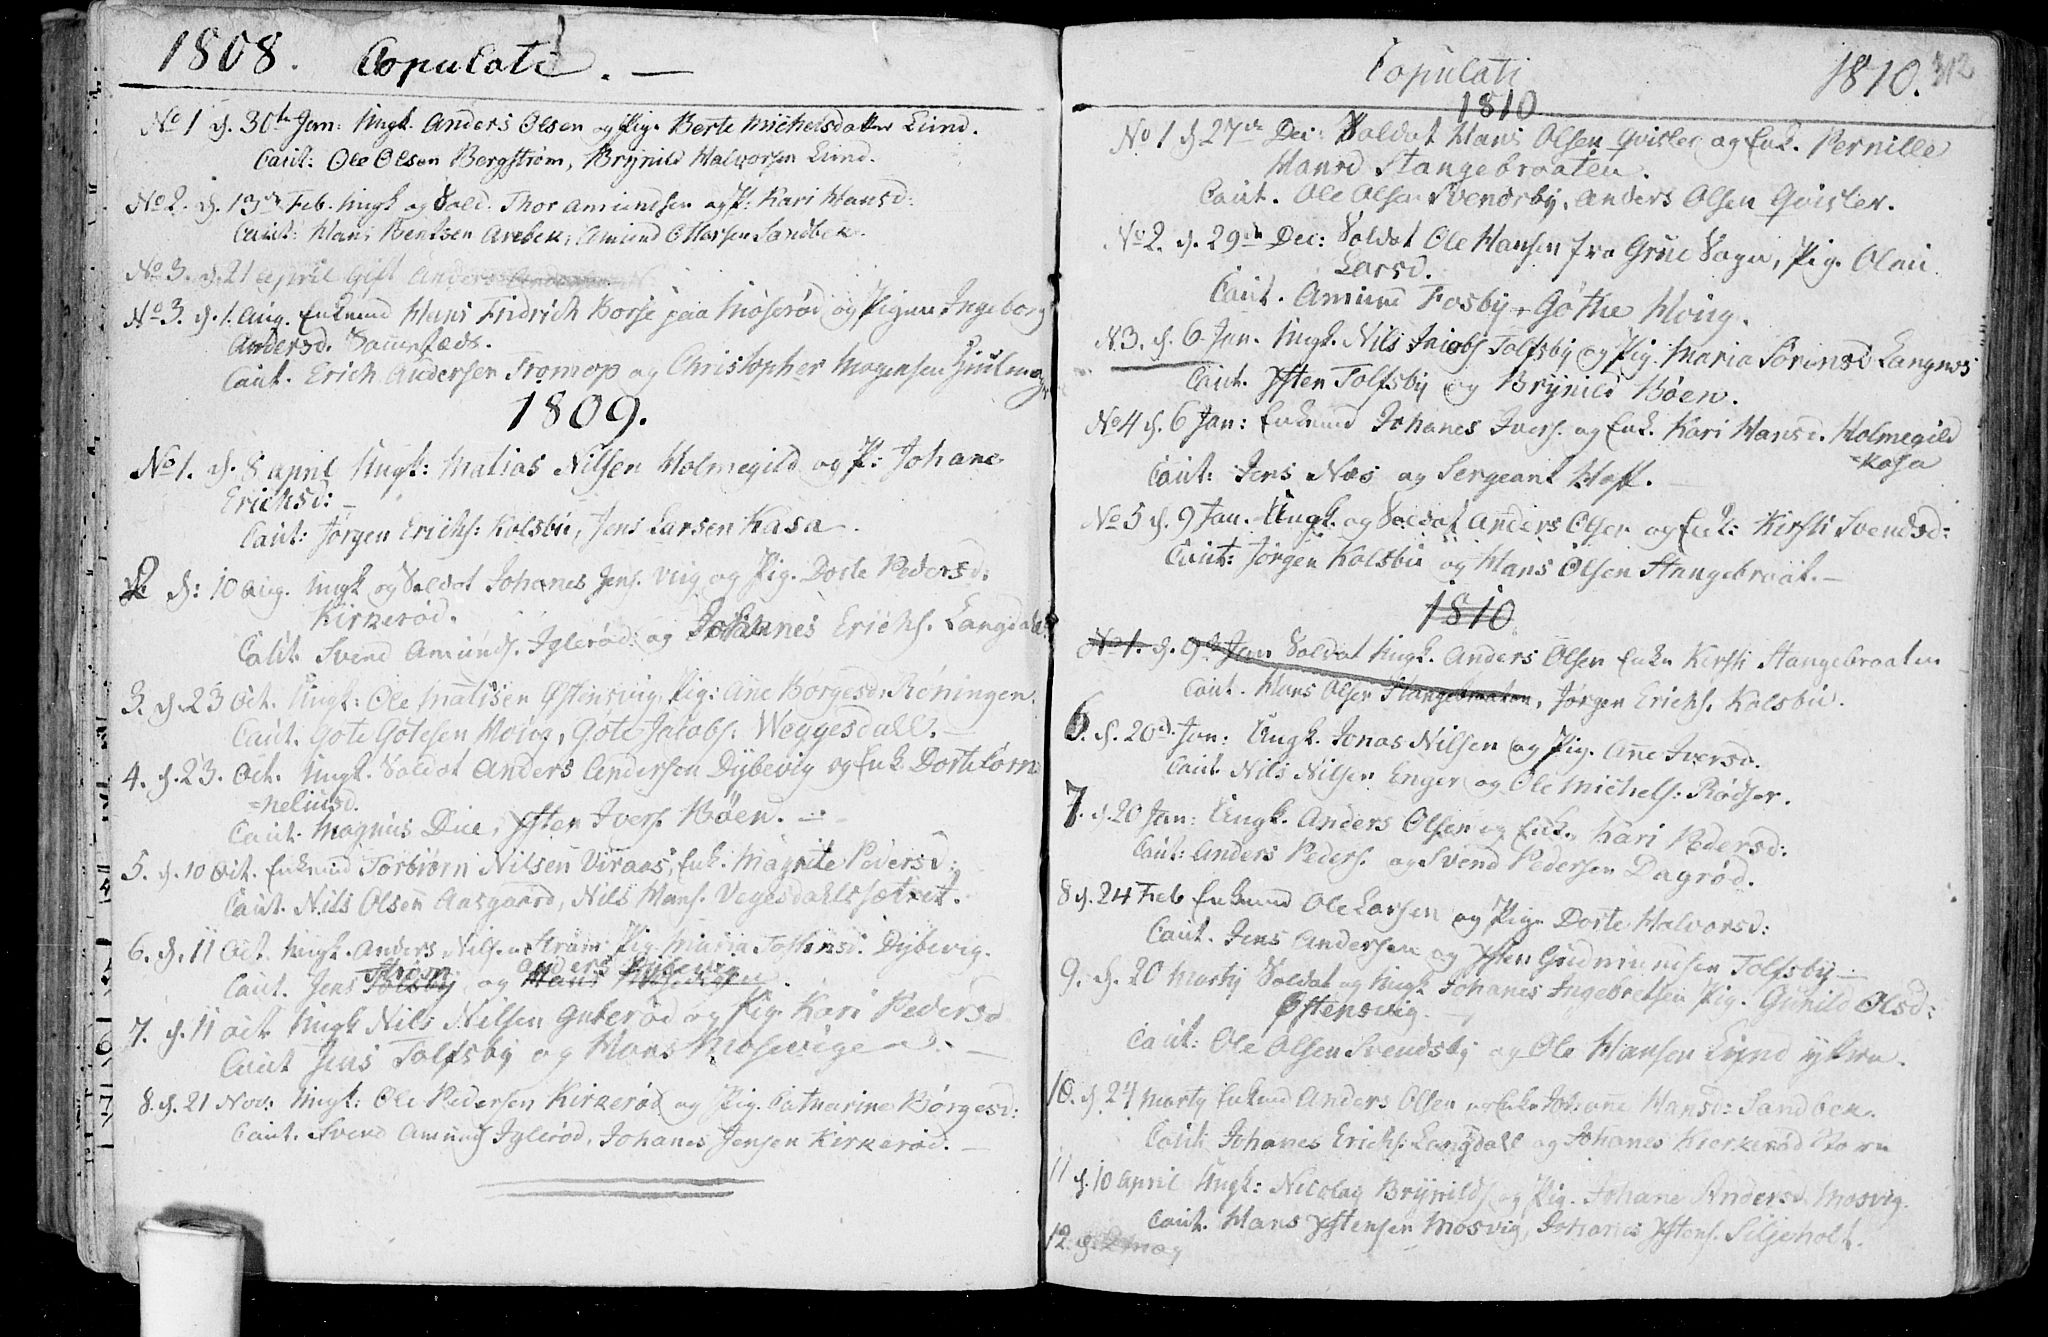 1808. Copulati. —
No 1 d. 30te Jan: Ungk. Anders Olsen og Pig. Berte Michelsdatter Lund.
Caut: Ole Olsen Bergstrøm, Brynild Halvorsen Lund.
No 2. d. 13de Feb. Ungk og Sold. Thor Amundsen og P: Kari Hansd:
Caut: Hans Bentsen Arebek, Amund Ottersen Sandbek.
No 3. d. 21 April Gift Anders
No 3. d. 1. Aug. Enkemd Hans Fridrich Borse paa Moserød og Pigen Ingeborg
Andersd. Sammesteds.
Caut. Erich Andersen Tromop og Christopher Mogensen
1809.
No 1. d. 8 April Ungk: Matias Nilsen Holmegild og P: Johane
Erichsd: —
Caut: Jørgen Erichs: Kolsbu, Jens Larsen Kasa.
2. d: 10 Aug. Ungk og Soldat Johanes Jens. Vug og Pig. Dorte Pedersd.
Kirkerød.
Caut. Svend Amunds. Iglerød: og Johannes Erichs. Langdal
3. d. 23 Oct. Ungk: Ole Matisen Østensvig, Pig: Ane Borgesd. Röningen.
Caut. Gote Gotesen Moig, Gote Jacobs: Weggesdall. —
4. d. 23. Oct. Ungk. Soldat Anders Andersen Dybevig og Enk Dorte Corn
=neliusd.
Caut. Magnus Due, Østen Ivers. Bøen. —
5. d. 10 Oct. Enkemd Torbiørn Nilsen Viraas, Enk. Magrete Pedersd:
Caut. Nils Olsen Aasgaard, Nils Hans. Vegesdahlssætret.
6. d. 11 Oct. Ungk. Anders Nilsen Strøm Pig. Maria Tostensd. Dybevig.
Strøm Anders Dybevig
Caut. Jens Tolfsby og Hans Mosevigen.
7. d. 11 Oct. Ungk Nils Nilsen Guterød og Pig. Kari Pedersd
Caut Jens Tolfsby og Hans Mosevigen. —
8. d. 21 Nov: Ungk: Ole Pedersen Kirkerød og Pig. Catharine Børgesd:
Caut. Svend Amunds Iglerød, Johanes Jensen Kirkerød. —
Copulati 1810. 312
1810
No 1 d 27de Dec: Soldat Hans Olsen Qvisler og Enk. Pernille
Hansd Stangebraaten.
Caut. Ole Olsen Svendsby, Anders Olsen Qvisler.
No 2. d. 29de Dec: Soldat Ole Hansen fra Grue Sogn, Pig. Oleni
Larsd.
Caut. Amund Fosby + Göthe Hoüg.
N 3. d. 6 Jan. Ungk. Nils Jacobs Tolfsby og Pig. Maria Sörensd Langnes
Caut. Østen Tolfsby og Brynild Böen.
No 4 d. 6 Jan: Enkemd Johanes Ivers. og Enk. Kari Hansd. Holmegild
=Kasa
Caut: Jens Næs og Sergeant Hoff. —
No 5 d. 9 Jan. Ungk. og Soldat Anders Olsen og Enk: Kirsti Svendsd:
Caut: Jörgen Kolsbu og Hans Olsen Stangebraat. —
1810
No 1. d. 9de Jan Soldat Ungk. Anders Olsen Enke Kersti Stangebraaten
Caut. Hans Olsen Stangebraaten, Jörgen Erichs. Kolsbu.
6. d. 20de Jan: Ungk. Jonas Nilsen og Pig. Ane Iversd.
Caut. Nils Nilsen Enger og Ole Michels: Rødser.
7. d. 20 Jan: Ungk. Anders Olsen og Enk. Kari Pedersd:
Caut: Anders Peders. og Svend Pedersen Dagrød.
8 d. 24 Feb Enkemd Ole Larsen og Pig Dorte Halvorsd:
Caut. Jens Andersen og Østen Gudmundsen Tolfsby —
9. d. 20 Marty Soldat og Ungk Johanes Ingebretsen Pig. Gunild Olsd:
Østensvig. —
Caut: Ole Olsen Svendsby og Ole Hansen Lund
10. d. 24 Marty Enkemd Anders Olsen og Enke Johane Hansd: Sandbek.
Caut: Johanes Erichs. Langdall og Johanes Kierkerød Store
11 d. 10 April Ungk: Nicolay Brynilds og Pig. Johane Andersd. Mosvig.
Caut. Hans Østensen Mosvig, Johanes Østens. Siljeholt.
12. d. 2 May